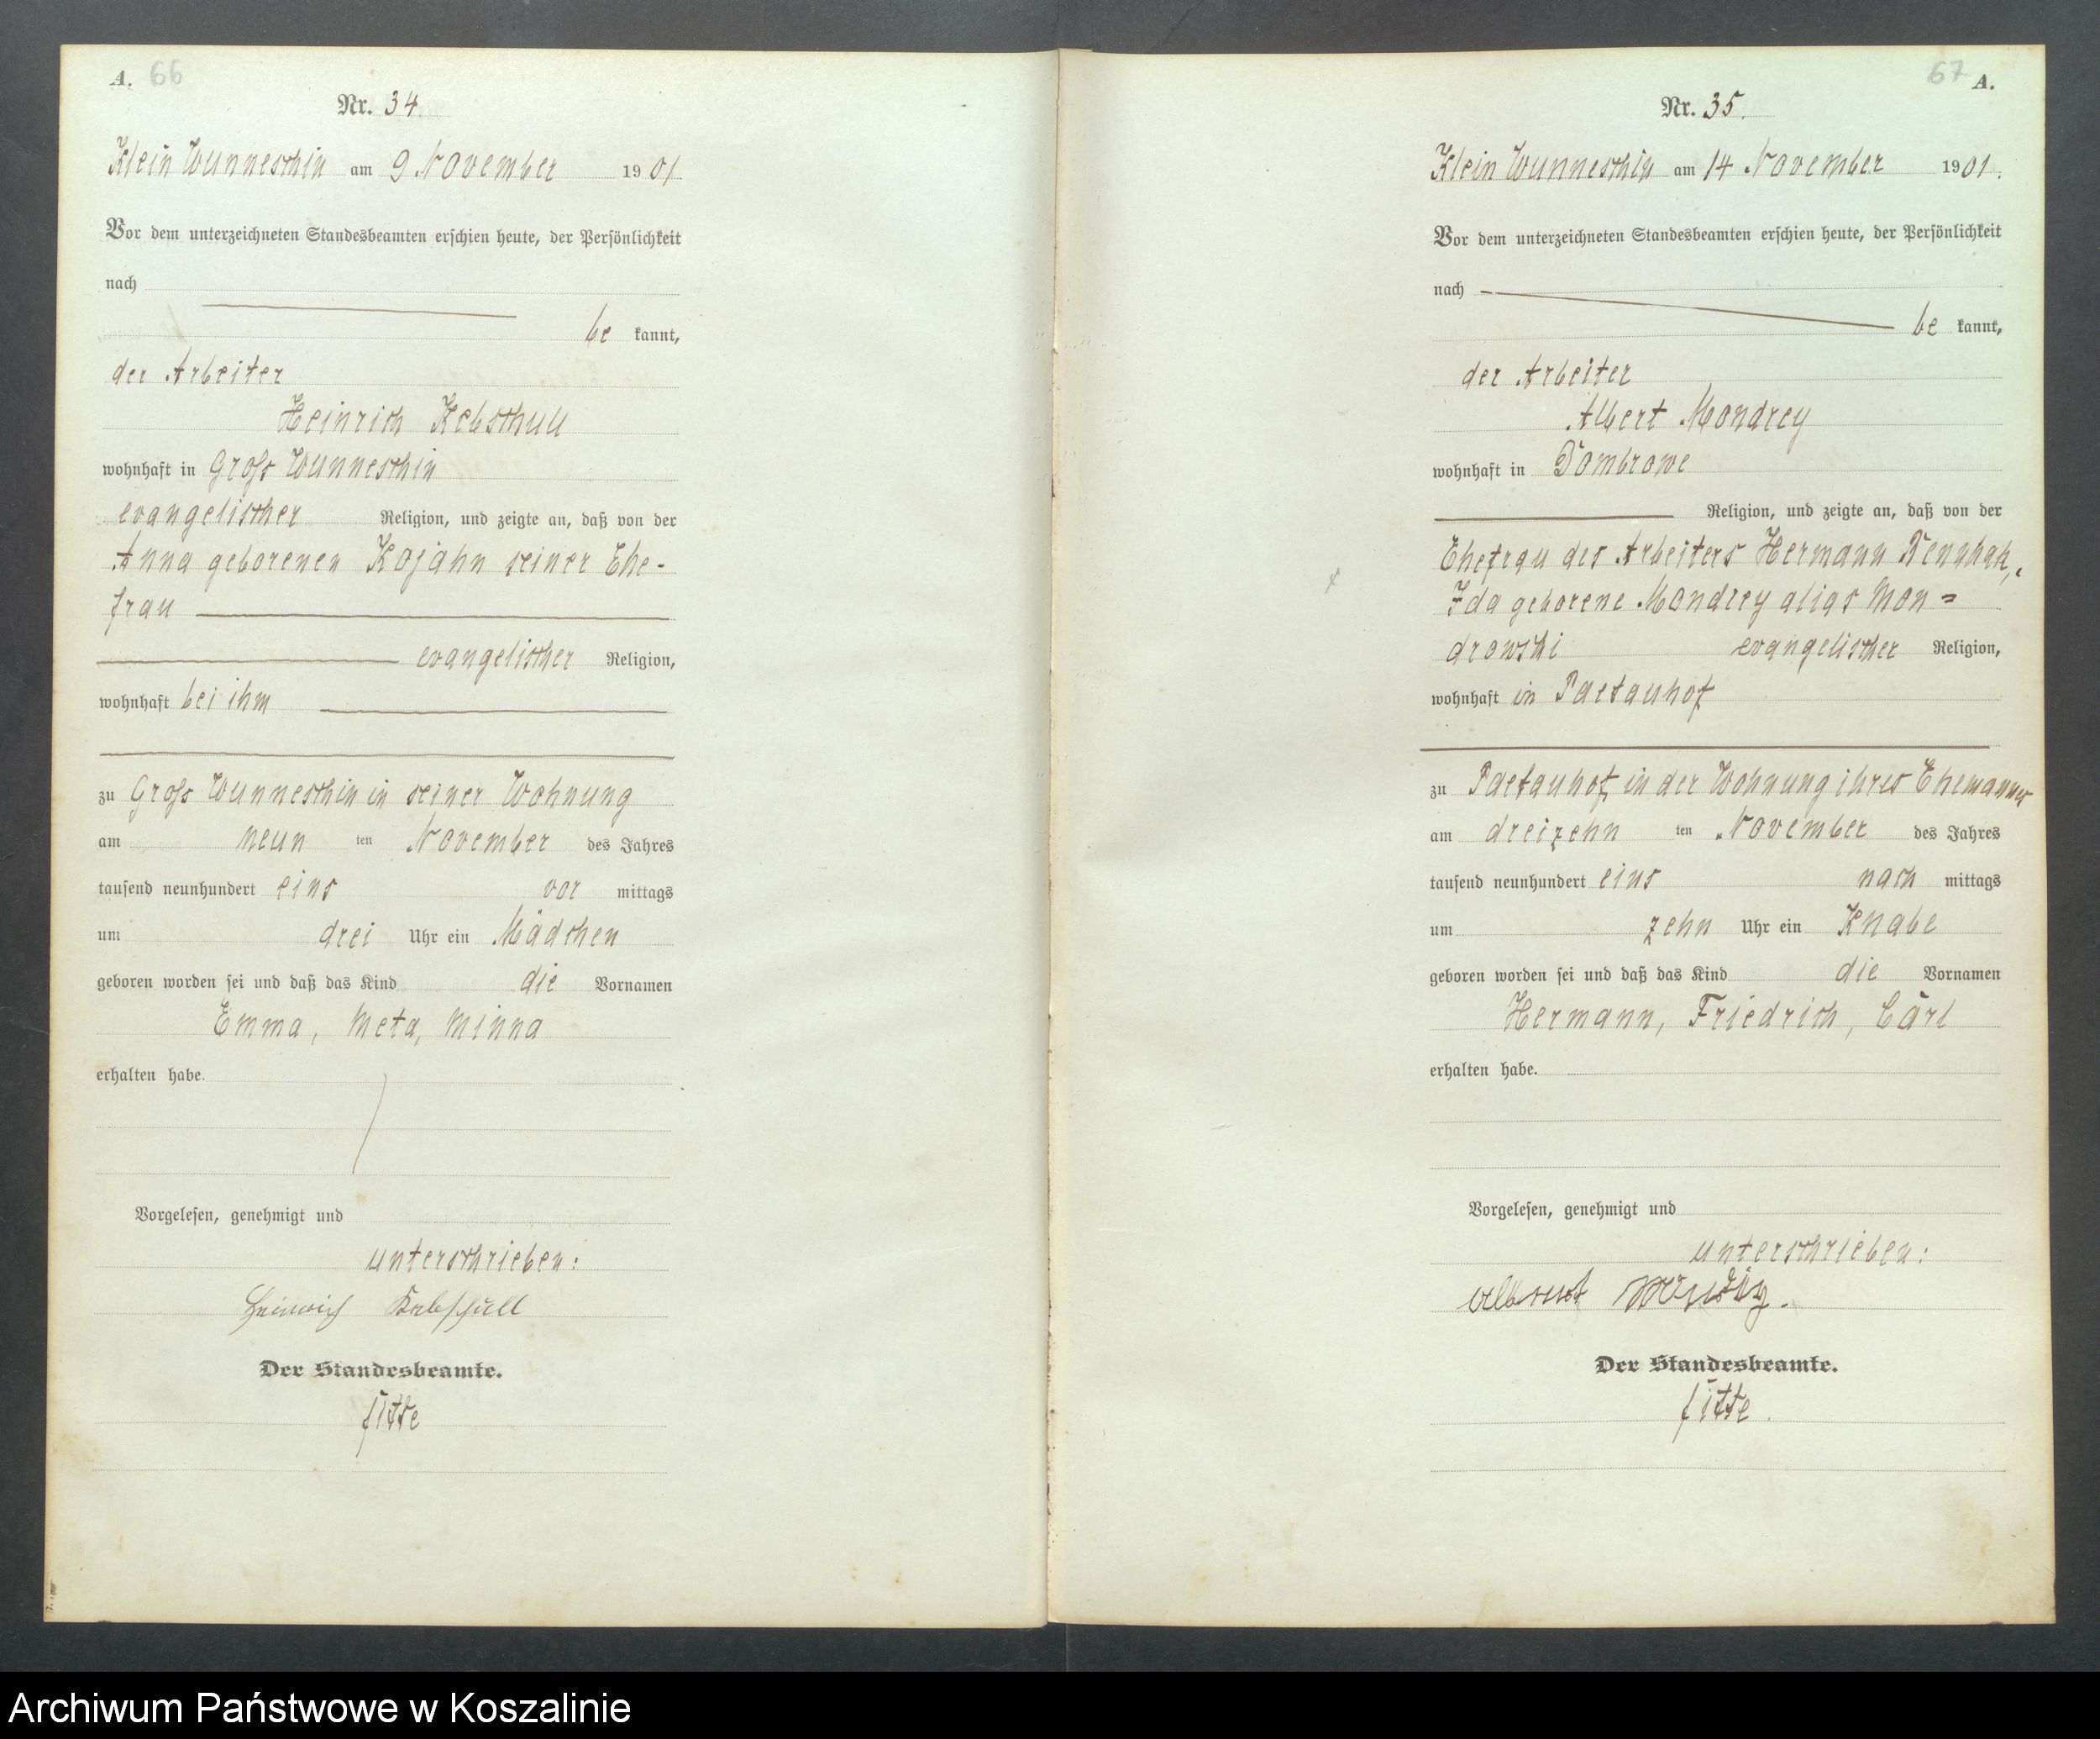 A. 66
Nr. 34.
Klein Wunneschin am 9 November 1901
Vor dem unterzeichneten Standesbeamten erschien heute, der Persönlichkeit
nach
be kannt,
der Arbeiter
Heinrich Kebschull
wohnhaft in Groß Wunneschin
evangelischer Religion, und zeigte an, daß von der
Anna geborenen Kojahn seiner Ehe-
frau
evangelischer Religion,
wohnhaft bei ihm
zu Groß Wunneschin in seiner Wohnung
am neun ten November des Jahres
tausend neunhundert eins vor mittags
um drei Uhr ein Mädchen
geboren worden sei und daß das Kind die Vornamen
Emma, Meta, Minna
erhalten habe.
Vorgelesen, genehmigt und
unterschrieben:
Heinrich Kebschull
Der Standesbeamte.
67 A.
Nr. 35.
Klein Wunneschin am 14 November 1901.
Vor dem unterzeichneten Standesbeamten erschien heute, der Persönlichkeit
nach
be kannt,
der Arbeiter
Albert Mondrey
wohnhaft in Dombrowe
Religion, und zeigte an, daß von der
Ehefrau des Arbeiters Hermann
Ida geborene Mondrey alias Mon=
drowski evangelischer Religion,
wohnhaft in
zu in der Wohnung ihres Ehemannes
am dreizehn ten November des Jahres
tausend neunhundert eins nach mittags
um zehn Uhr ein Knabe
geboren worden sei und daß das Kind die Vornamen
Hermann, Friedrich, Carl
erhalten habe.
Vorgelesen, genehmigt und
unterschrieben:
Der Standesbeamte.
Archiwum Państwowe w Koszalinie